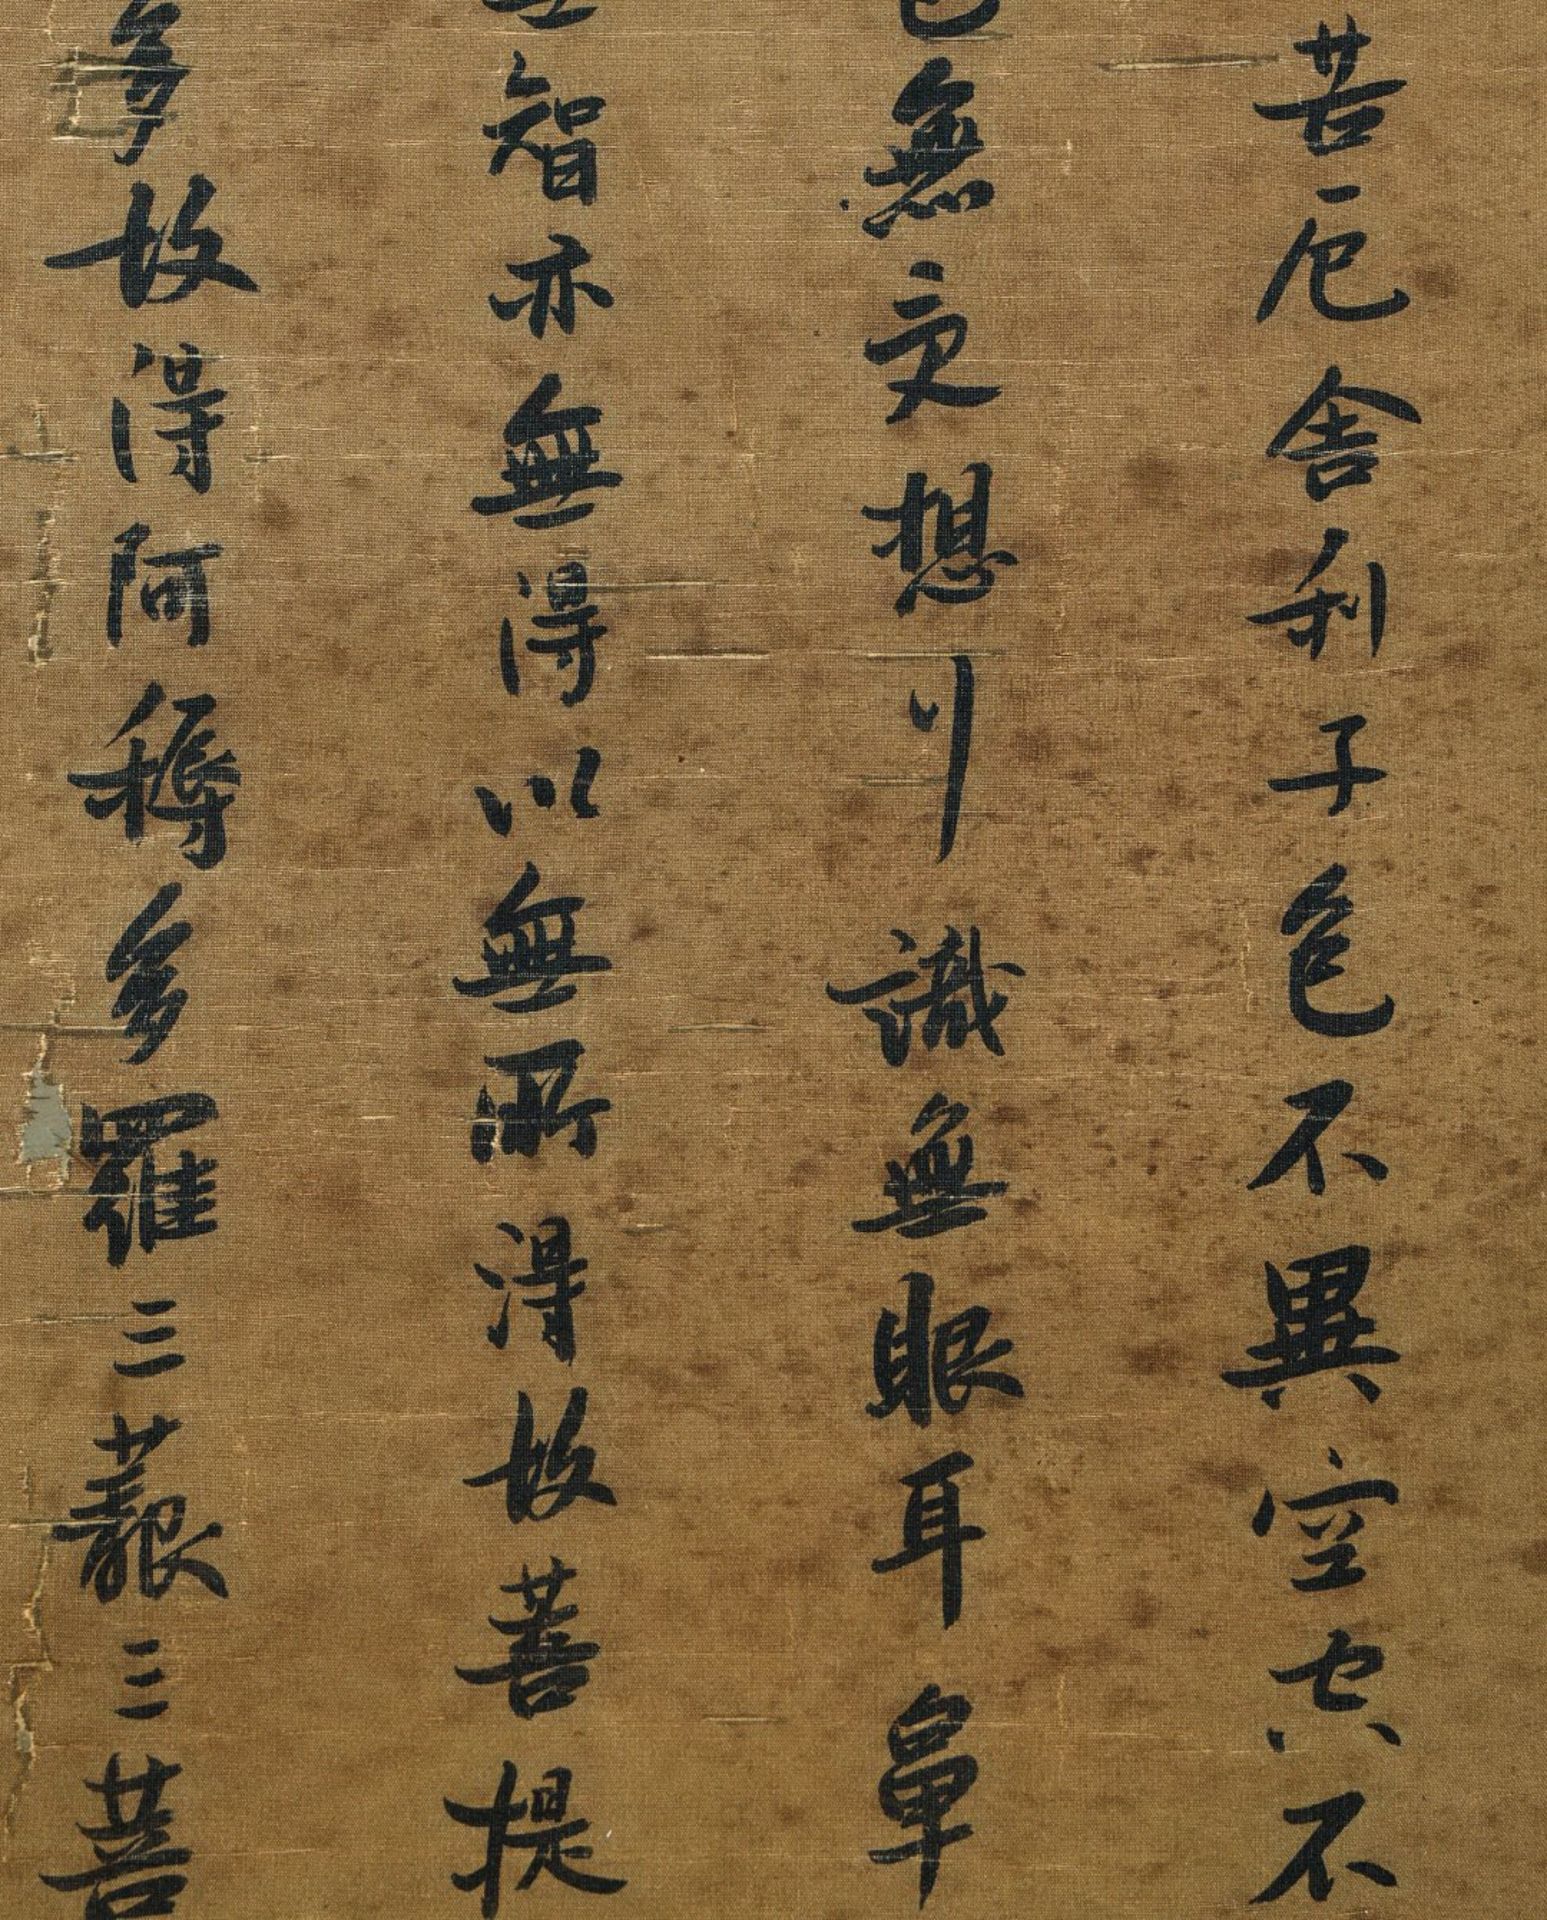 苦厄舍利子色不異空空不
色無受想行識無眼耳鼻
智亦無得以無所得故菩提
多故得阿耨多羅三藐三菩